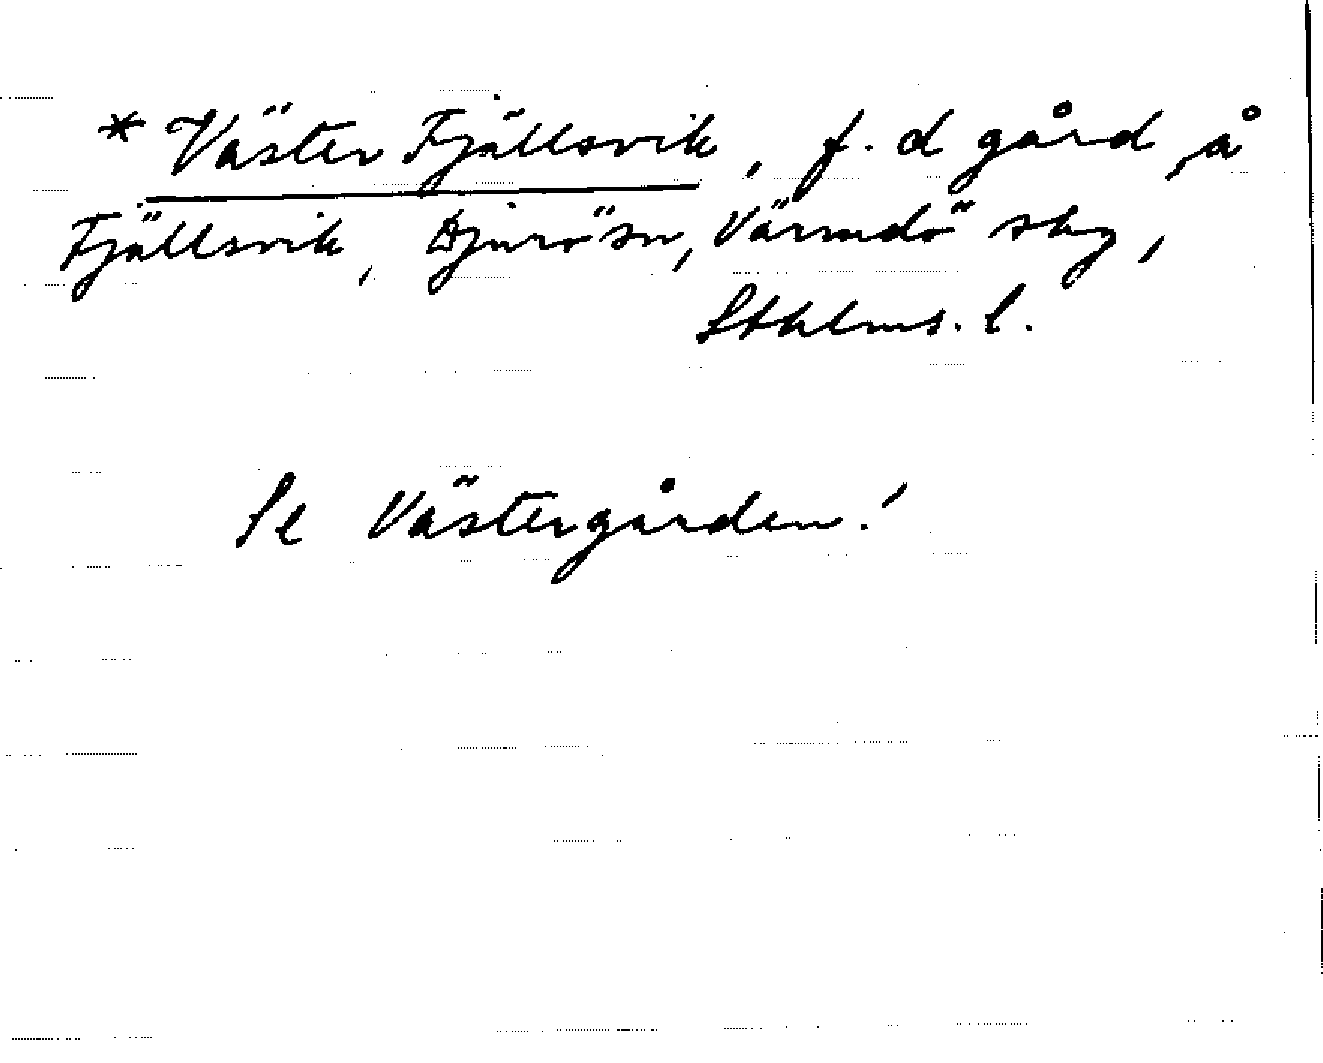 * Väster Fjällsvik, f. d gård, å
Fjällsvik, Djurö sn, Värmdö skg,
Sthlms. l.
Se Västergården!